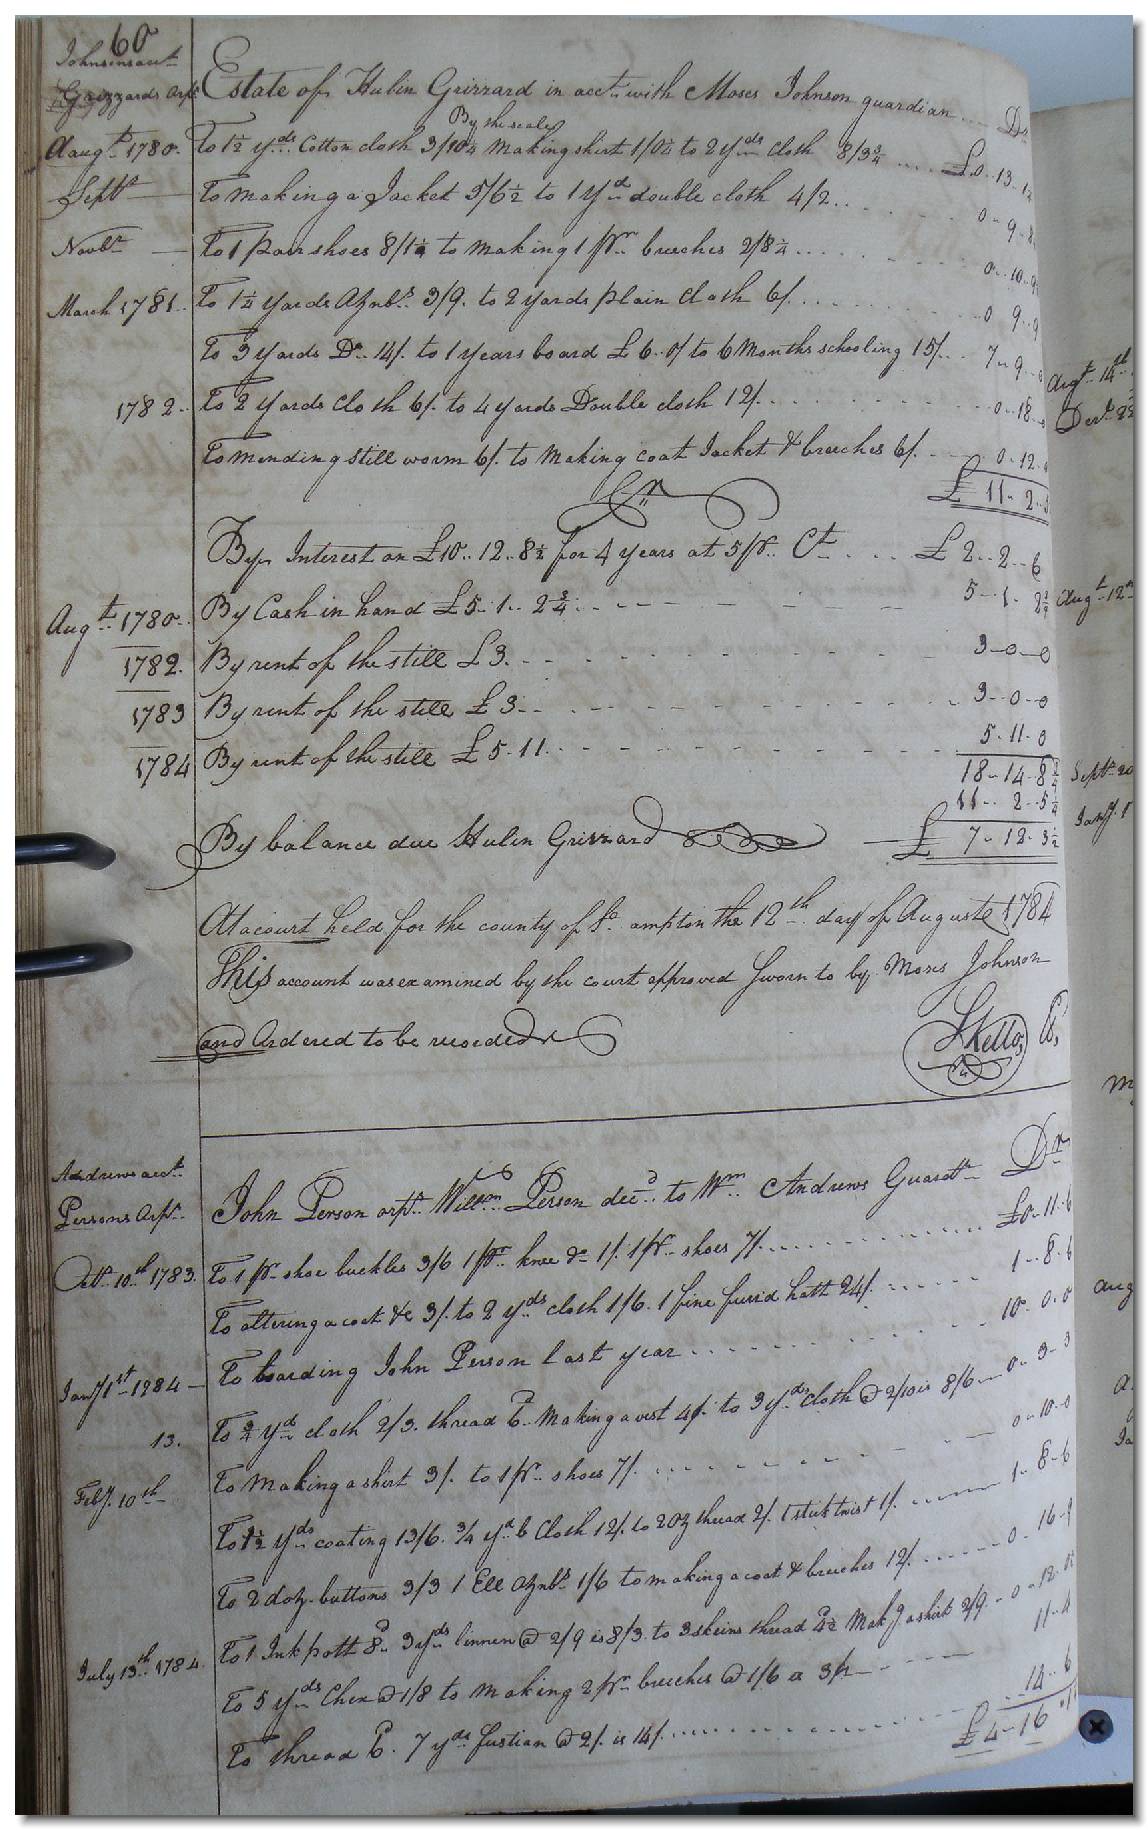 60
Johnsons acct
Grizzards Orpn
Estate of Hulin Grizzard in acct with Moses Johnson guardian Dr
By the scale
Augt 1780 To 1½ yds Cotton cloth 3/10¼ making shirt 1/0¼ to 2 yds cloth 8/3¾ .... £0-13-
Septr To making a Jacket 3/6½ to 1 yd double cloth 4/2 .... 0-9-8
Novbr To 1 pair shoes 8/1¼ to making 1 pr breeches 2/8¼ .... 0-10-9
March 1781 To 1¼ yards Oznbs 3/9 to 2 yards plain cloath 6/ .... 0 9-9
To 3 yards Do 14/ to 1 years board £6-0/ to 6 Months schooling 15/ 7-9-
1782 To 2 yards cloth 6/ to 4 yards Double cloth 12/ .... 0-18-
To mending still worm 6/ to Making coat Jacket & breeches 6/ .... 0-12-
£ 11-2-5
Cr
By Interest on £10-12-8½ for 4 years at 5 pr Ct .... £ 2-2-6
Augt 1780 By Cash in hand £5-1-2¾ .... 5-1-2¾
1782 By rent of the still £3 .... 3-0-0
1783 By rent of the still £3 .... 3-0-0
1784 By rent of the still £5-11 .... 5-11-0
18-14-8¾
11-2-5¼
By balance due Hulin Grizzard £ 7-12-3½
At a court held for the county of So ampton the 12th day of Auguste 1784
This account was examined by the court approved Sworn to by Moses Johnson
and Ordered to be recorded
S Kello Ck
Andrews acct
Persons Orpn
John Person orpn Willm Person decd to Wm Andrews Guardn Dr
Octr 10th 1783 To 1 pr shoe buckles 3/6 1 pr knee do 1/ 1 pr shoes 7/ .... £0-11-6
To altering a coat &c 3/ to 2 yds cloth 1/6 1 fine furrd hatt 24/ .... 1-8-6
Jany 1st 1784 To boarding John Person last year .... 10-0-0
13 To ¾ yd cloth 2/3 thread 6d Making a vest 4/ to 3 yds cloth @ 2/10 is 8/6 0-3-3
To making a shirt 3/ to 1 pr shoes 7/ .... 0-10-0
Feby 10th To 1½ yds coating 13/6 ¾ yd b Cloth 12/ to 2 oz thread 2/ 1 stick twist 1/ .... 1-8-6
To 2 doz buttons 3/3 1 Ell Oznbs 1/6 to making a coat & breeches 12/ .... 0-16-9
To 1 Ink pott 8d 3 yds linnen @ 2/9 is 8/3 to 3 skeins thread 4½ Makg a shirt 2/9 0-12-
July 13th 1784 To 5 yds Chex @ 1/8 to making 2 pr breeches @ 1/6 a 3/ 11-4
To thread 6d 7 yds fustian @ 2/ is 14/ .... 14-6
£4-16
Augt 14th
Decr 22
Augt 12th
Septr 20
Jany 1
Aug